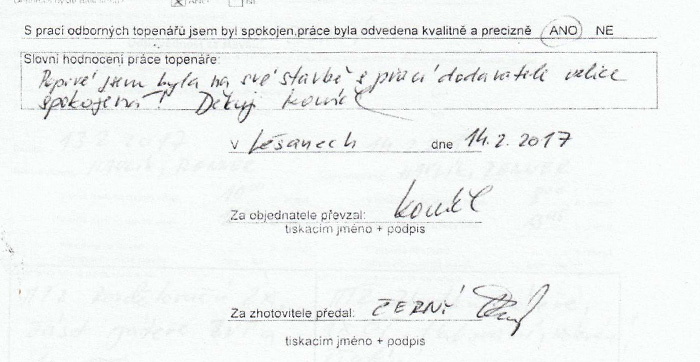 S prací odborných topenářů jsem byl spokojen,práce byla odvedena kvalitně a precizně ANO NE
Slovní hodnocení práce topenáře:
Poprvé jsem byla na své stavbě s prací dodavatele velice
spokojená! Děkuji
V Lešanech dne 14.2.2017
Za objednatele převzal:
tiskacím jméno + podpis
Za zhotovitele předal: ČERNÝ
tiskacím jméno + podpis